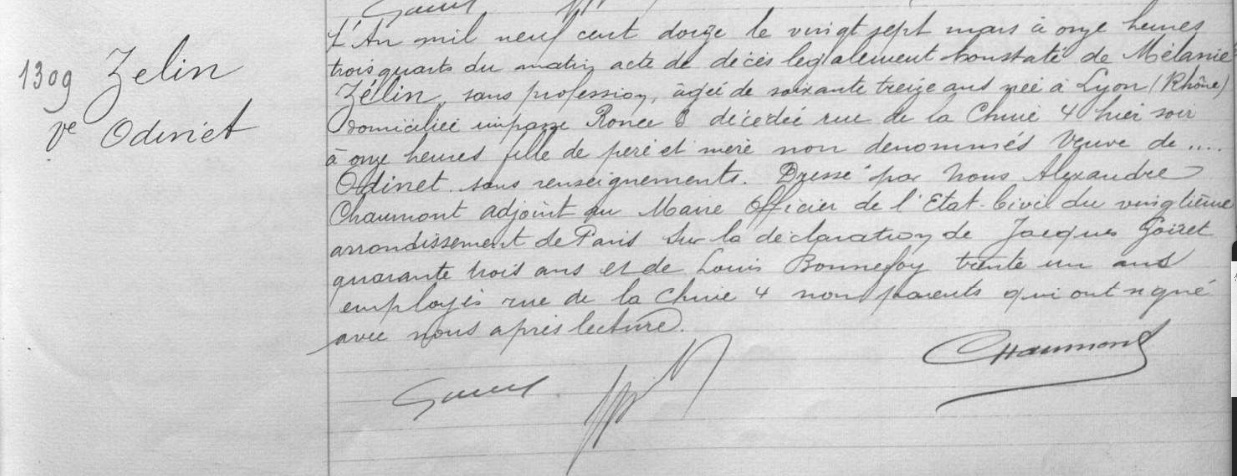 1309 Zelin
Ve Odinet
L'An mil neuf cent douze le vingt sept mars à onze heures
trois quarts du matin acte de décès legalement constaté de Mélanie
Zélin, sans profession, agée de soixante treize ans née à Lyon (Rhône)
domiciliée impasse Ronce 8 décédée rue de la Chine 4 hier soir
à onze heures fille de père et mère non denommés Veuve de ....
Odinet sans renseignements. Dressé par Nous Alexandre
Chaumont adjoint au Maire Officier de l'Etat-Civil du vingtième
arrondissement de Paris sur la déclaration de Jacques Goizet
quarante trois ans et de Louis Bonnefoy trente un ans
employés rue de la Chine 4 non parents qui ont signé
avec nous après lecture.
Chaumont